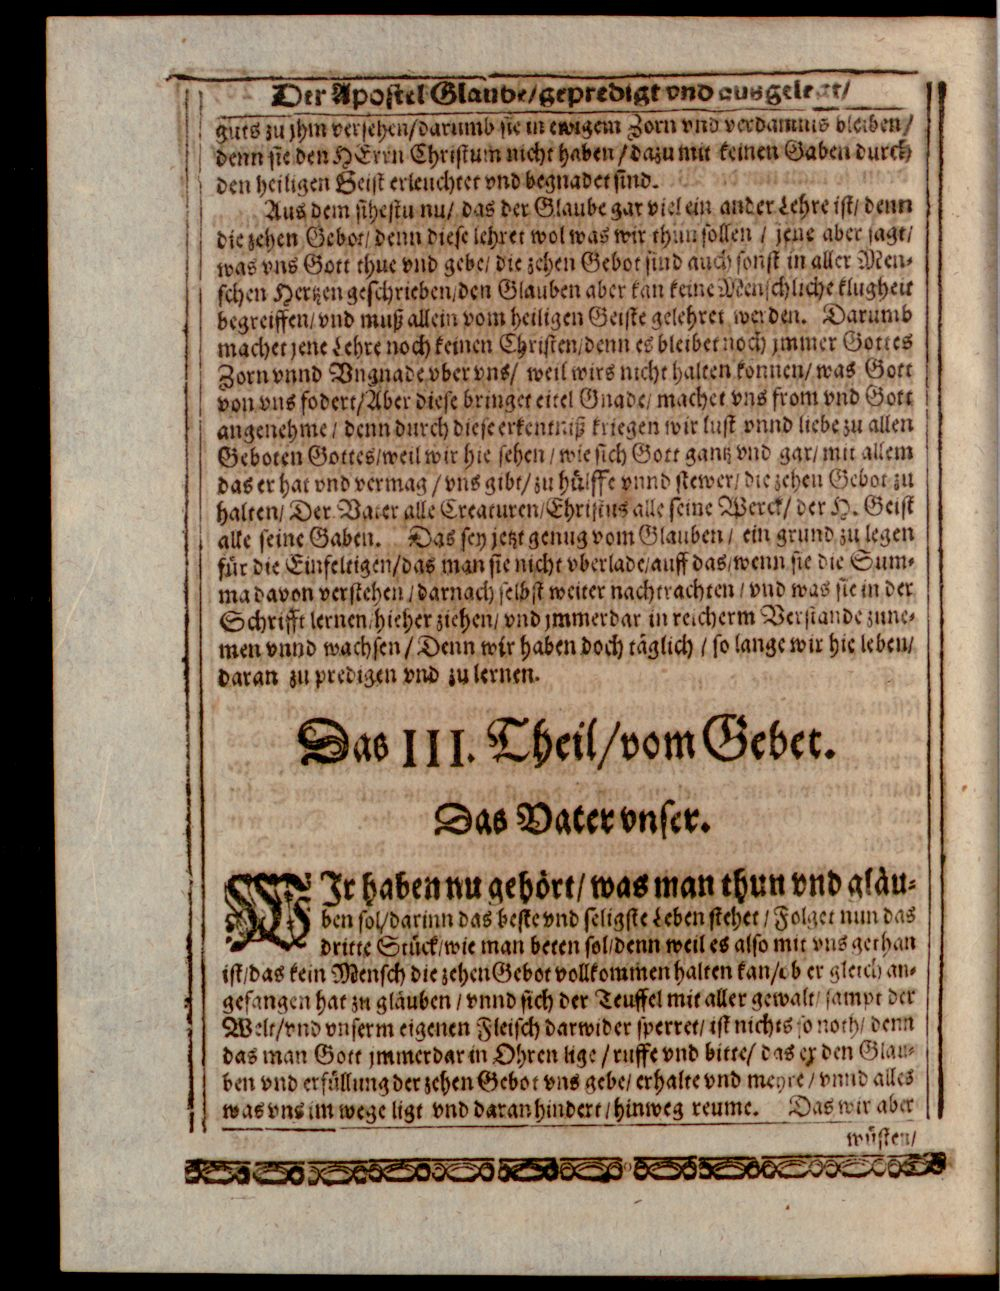 Der Apostel Glaube/gepredigt vnd ausgelegt/
guts zu jhm versehen/darumb sie in ewigem Zorn vnd verdamnis bleiben/
denn sie den HErrn Christum nicht haben/dazu mit keinen Gaben durch
den heiligen Geist erleuchtet vnd begnadet sind.
Aus dem sihestu nu/ das der Glaube gar viel ein ander Lehre ist/ denn
die zehen Gebot/ denn diese lehret wol was wir thun sollen / jene aber sagt/
was vns Gott thue vnd gebe/ die zehen Gebot sind auch sonst in aller Men-
schen Hertzen geschrieben/den Glauben aber kan keine Menschliche klugheit
begreiffen/ vnd muß allein vom heiligen Geiste gelehret werden. Darumb
machet jene Lehre noch keinen Christen/denn es bleibet noch jmmer Gottes
Zorn vnnd Vngnade vber vns/ weil wirs nicht halten können/ was Gott
von vns fodert/Aber diese bringet eitel Gnade/ machet vns from vnd Gott
angenehme / denn durch diese erkentniß kriegen wir lust vnnd liebe zu allen
Geboten Gottes/weil wir hie sehen / wie sich Gott gantz vnd gar/ mit allem
das er hat vnd vermag / vns gibt/ zu hülffe vnnd stewer/ die zehen Gebot zu
halten/ Der Vater alle Creaturen/Christus alle seine Werck/ der H. Geist
alle seine Gaben. Das sey jetzt genug vom Glauben / ein grund zu legen
für die Einfeltigen/das man sie nicht vberlade/auff das/wenn sie die Sum-
ma davon verstehen / darnach selbst weiter nachtrachten / vnd was sie in der
Schrifft lernen/hieher ziehen/ vnd jmmerdar in reicherm Verstande zune-
men vnnd wachsen/ Denn wir haben doch täglich / so lange wir hie leben/
daran zu predigen vnd zu lernen.
Das III. Theil/vom Gebet.
Das Vater vnser.
WIr haben nu gehört/ was man thun vnd gläu-
ben sol/darinn das beste vnd seligste Leben stehet / Folget nun das
dritte Stück/wie man beten sol/denn weil es also mit vns gethan
ist/das kein Mensch die zehen Gebot vollkommen halten kan/ob er gleich an-
gefangen hat zu gläuben / vnnd sich der Teuffel mit aller gewalt/ sampt der
Welt/vnd vnserm eigenen Fleisch darwider sperret/ ist nichts so noth/ denn
das man Gott jmmerdar in Ohren lige / ruffe vnd bitte/ das er den Glau-
ben vnd erfüllung der zehen Gebot vns gebe/ erhalte vnd mehre / vnnd alles
was vns im wege ligt vnd daran hindert/hinweg reume. Das wir aber
wüsten/